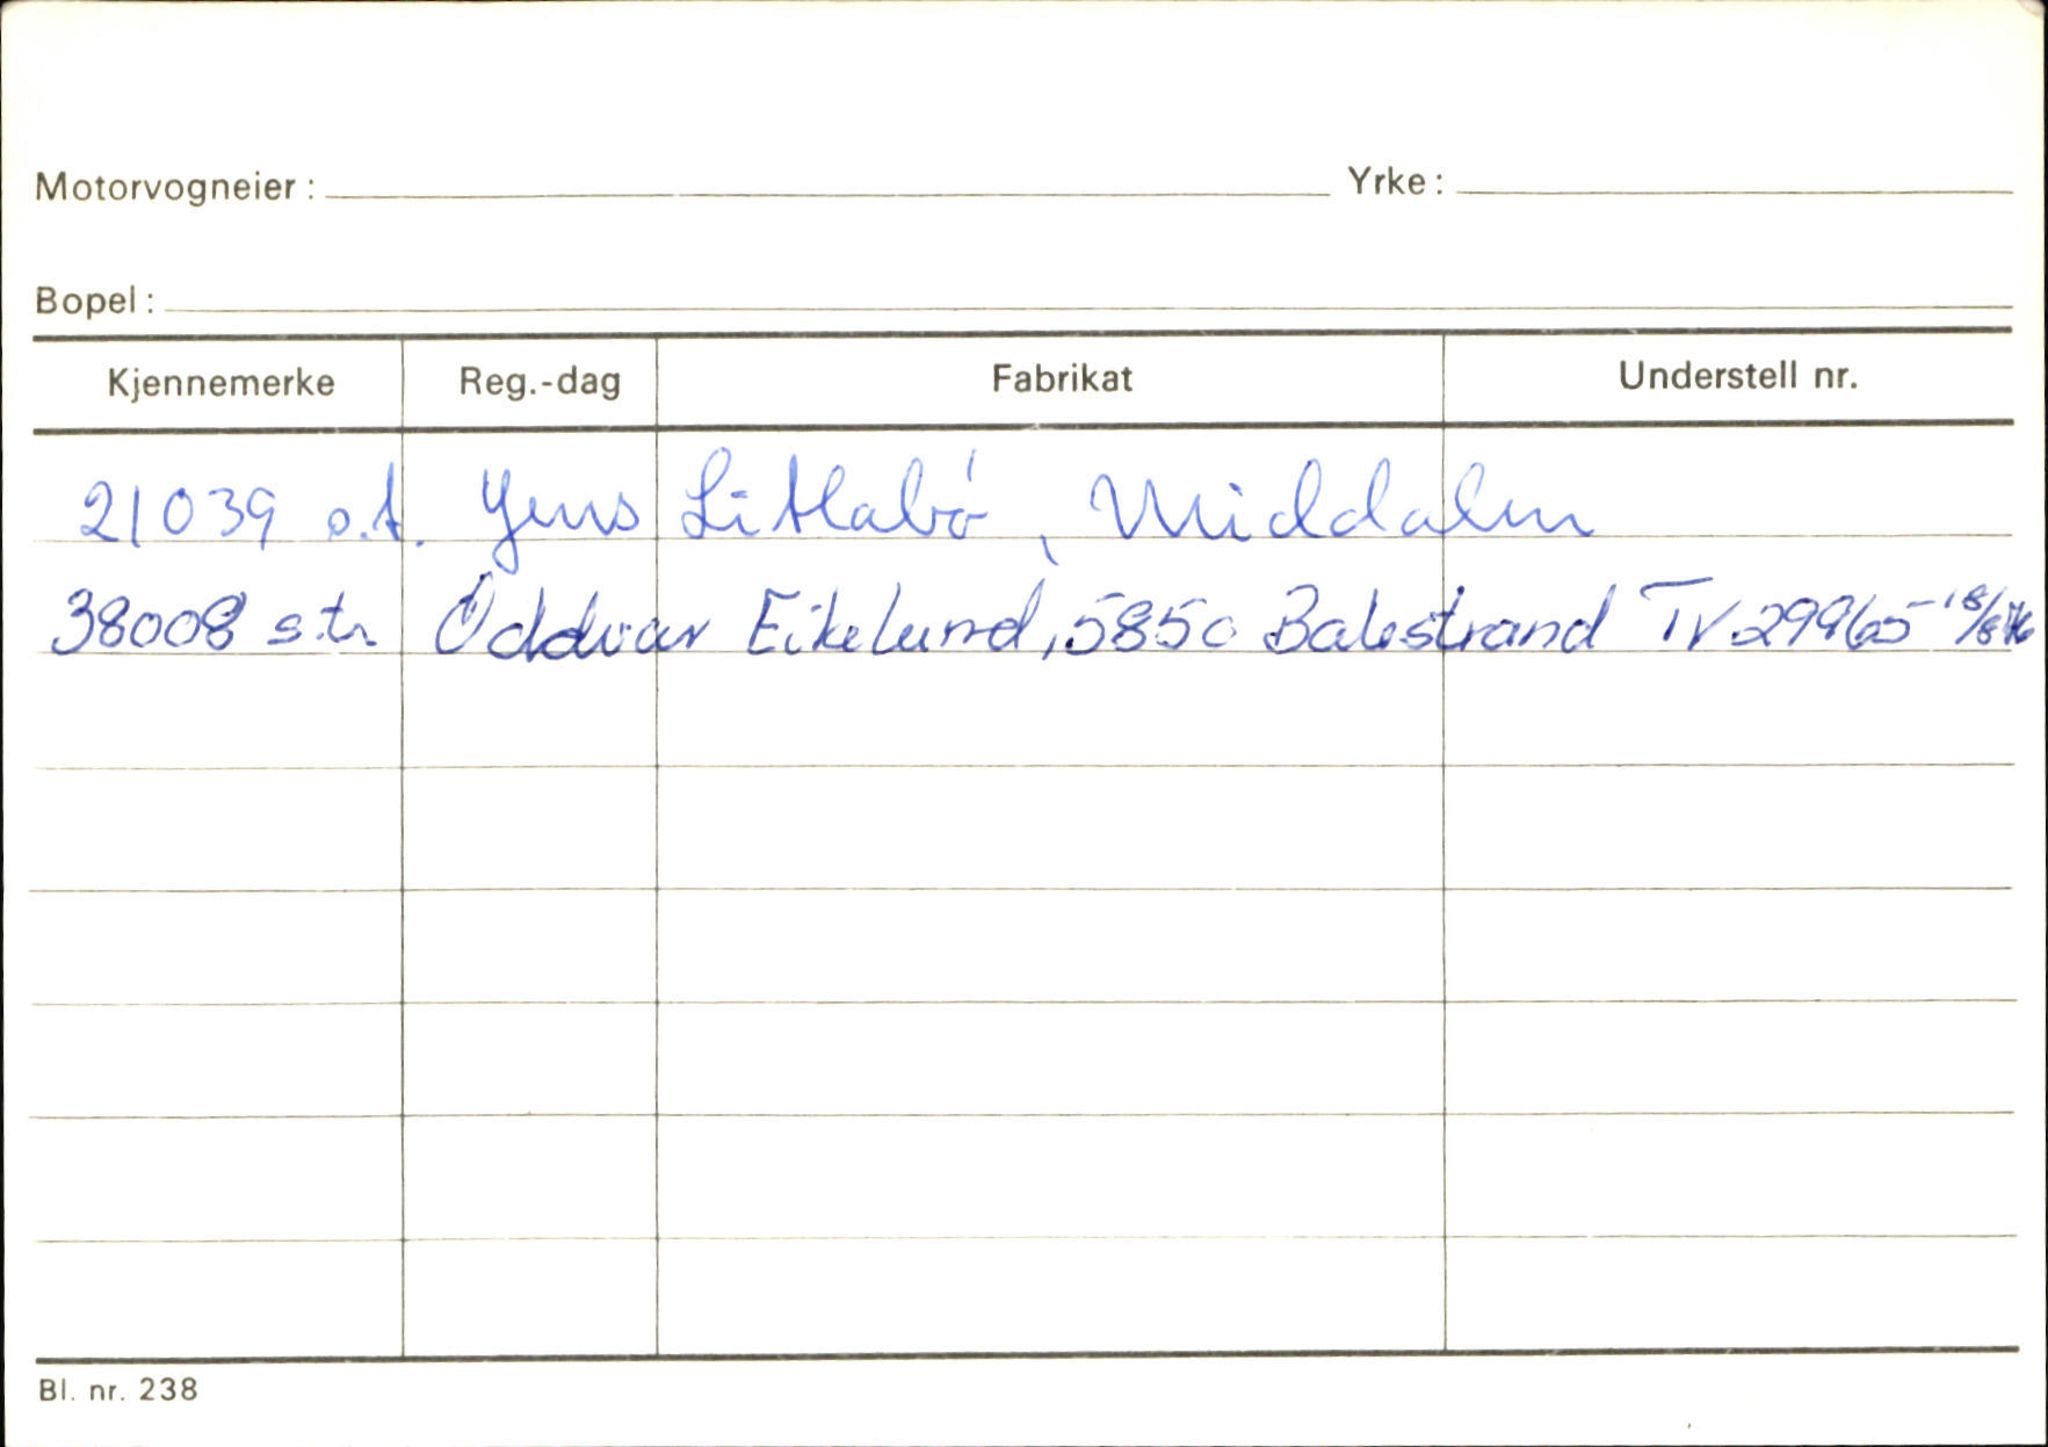 Motorvogneier: Yrke:
Bopel:
Kjennemerke Reg.-dag Fabrikat Understell nr.
21039 o.t. Jens Litlabø, Middalen
38008 str Oddvar Eikelund, 5850 Balestrand TV 29965 18/8
Bl. nr. 238